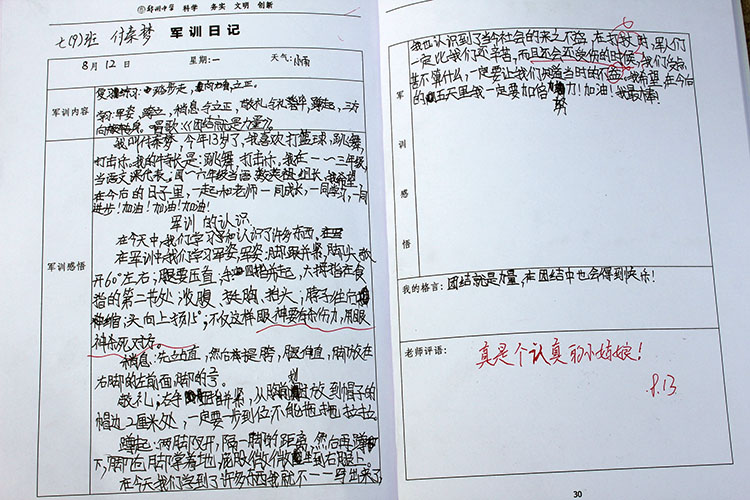 郑州中学 科学 务实 文明 创新
七(9)班 付荣梦 军训日记
8月12日 星期:一 天气:小雨
军训内容
复习练习: 立正。
学习:军姿, 跨立, 稍息与立正, 敬礼与礼毕, 蹲起, 三方
唱歌:《团结就是力量》。
军训感悟
我叫付荣梦,今年13岁了,我喜欢打篮球,跳舞,
打击乐。我的特长是:跳舞,打击乐。我在一~三年级
当语文课代表。四~六年级当语 组长,我希望
在今后的日子里,一起和老师一同成长,一同学习,一同
进步!加油!加油!加油!
军训的认识
在今天中,我们学习和认识了许多东西,
在军训中,我们学习军姿,军姿:脚跟并紧,脚尖
开60°左右,腿要压直, 四指并起,大拇指在食
指的第二节处,收腹、挺胸、抬头,脖子往后
缩,头向上扬15°;不仅这样眼神要有杀伤力,用眼
神杀死对方。
稍息:先立直,然后 提胯,腿伸直,脚放在
右脚的左前面,脚的
敬礼:右手 并紧,从胸 过放到帽子的
帽边2厘米处,一定要一步到位不能拖拖拉拉
蹲起:两脚叉开,隔一脚的距离,然后再蹲
下,脚 脚掌着地,屁股微微坐到右腿上
在今天我们学到了许多东西我就不一一写出来了
军训感悟
我也认识到了当今社会的来之不易,在打 时,军人们
一定比我们还辛苦,而且还会受伤的时候,我们受点
苦不算什么,一定要让我们知道当时的不容易。我希望,在今后
的五天里我一定要加倍努力!加油!我最棒!
我的格言: 团结就是力量,在团结中也会得到快乐!
老师评语: 真是个认真的小姑娘!
8.13
30